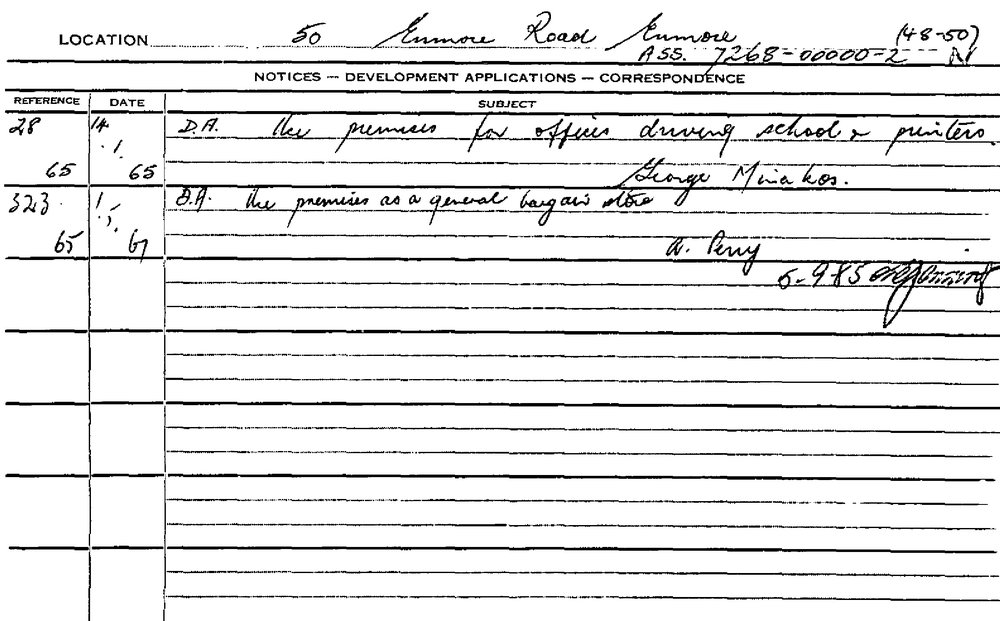 LOCATION 50 Enmore Road Enmore (48-50)
ASS. 7268-00000-2 N
NOTICES — DEVELOPMENT APPLICATIONS — CORRESPONDENCE
REFERENCE DATE SUBJECT
28 14 D.A. the premises for offices driving school & printers.
1
65 65 George Minakos.
323 1 D.A. the premises as a general bargain store
5
65 67 A. Perry